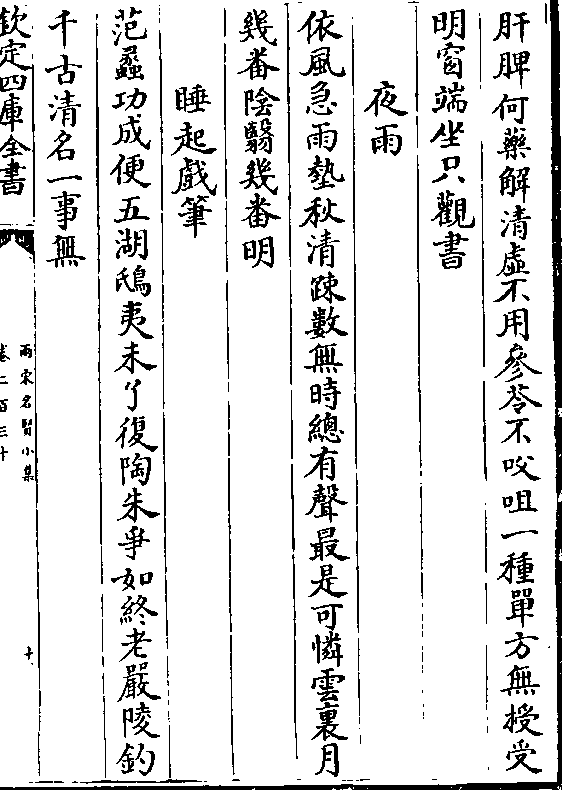 肝脾何藥解清虛不用參苓不㕮咀一種單方無授受
明窗端坐只觀書
夜雨
依風急雨熱秋清踈數無時總有聲最是可憐雲裏月
幾番陰翳幾番明
睡起戲筆
范蠡功成便五湖鴟夷未了復陶朱爭如終老嚴陵釣
千古清名一事無
欽定四庫全書
兩宋名賢小集
卷二百三十
十